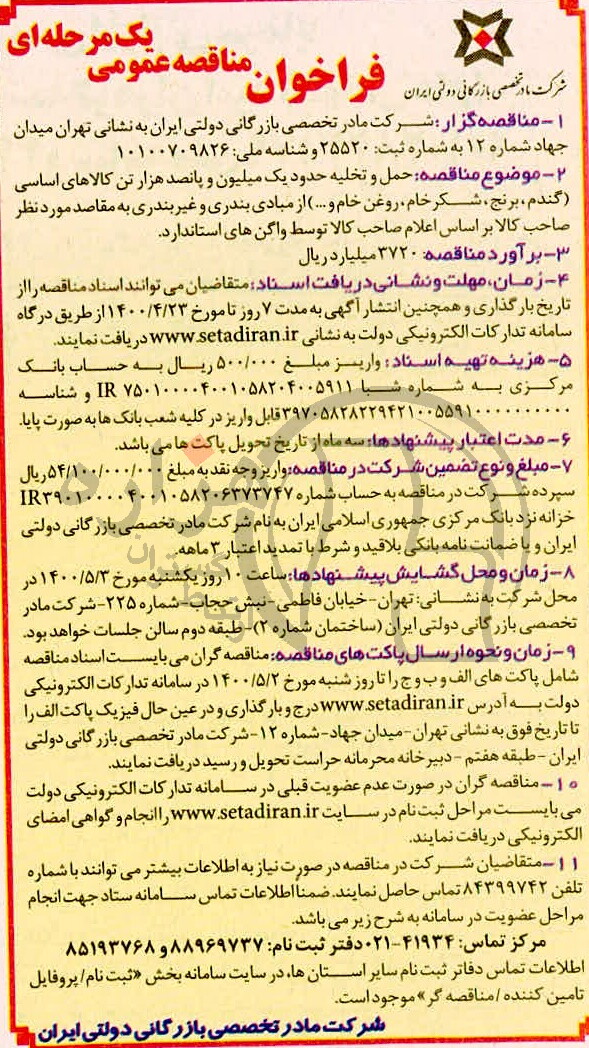 یک مرحله‌ای
فراخوان مناقصه عمومی
شرکت مادر تخصصی بازرگانی دولتی ایران
۱- مناقصه گزار: شرکت مادر تخصصی بازرگانی دولتی ایران به نشانی تهران میدان
جهاد شماره ۱۲ به شماره ثبت: ۲۵۵۲۰ و شناسه ملی: ۱۰۱۰۰۷۰۹۸۲۶
۲- موضوع مناقصه: حمل و تخلیه حدود یک میلیون و پانصد هزار تن کالاهای اساسی
(گندم، برنج، شکر خام، روغن خام و...) از مبادی بندری و غیر بندری به مقاصد مورد نظر
صاحب کالا بر اساس اعلام صاحب کالا توسط واگن های استاندارد.
۳- برآورد مناقصه: ۳۷۲۰ میلیارد ریال
۴- زمان، مهلت و نشانی دریافت اسناد: متقاضیان می توانند اسناد مناقصه را از
تاریخ بارگذاری و همچنین انتشار آگهی به مدت ۷ روز تا مورخ ۱۴۰۰/۴/۲۳ از طریق درگاه
سامانه تدارکات الکترونیکی دولت به نشانی www.setadiran.ir دریافت نمایند.
۵- هزینه تهیه اسناد: واریز مبلغ ۵۰۰/۰۰۰ ریال به حساب بانک
مرکزی به شماره شبا IR ۷۵۰۱۰۰۰۰۴۰۰۱۰۵۸۲۰۴۰۰۵۹۱۱ و شناسه
۳۹۷۰۵۸۲۸۲۲۹۴۲۱۰۰۵۵۹۱۰۰۰۰۰۰۰۰۰۰ قابل واریز در کلیه شعب بانک ها به صورت پایا.
۶- مدت اعتبار پیشنهادها: سه ماه از تاریخ تحویل پاکت ها می باشد.
۷- مبلغ و نوع تضمین شرکت در مناقصه: واریز وجه نقد به مبلغ ۵۴/۱۰۰/۰۰۰/۰۰۰ ریال
سپرده شرکت در مناقصه به حساب شماره IR۳۹۰۱۰۰۰۰۴۰۰۱۰۵۸۲۰۶۳۷۳۷۴۷
خزانه نزد بانک مرکزی جمهوری اسلامی ایران به نام شرکت مادر تخصصی بازرگانی دولتی
ایران و یا ضمانت نامه بانکی بلاقید و شرط با تمدید اعتبار ۳ ماهه.
۸- زمان و محل گشایش پیشنهادها: ساعت ۱۰ روز یکشنبه مورخ ۱۴۰۰/۵/۳ در
محل شرکت به نشانی: تهران- خیابان فاطمی- نبش حجاب- شماره ۲۲۵- شرکت مادر
تخصصی بازرگانی دولتی ایران (ساختمان شماره ۲)- طبقه دوم سالن جلسات خواهد بود.
۹- زمان و نحوه ارسال پاکت های مناقصه: مناقصه گران می بایست اسناد مناقصه
شامل پاکت های الف و ب و ج را تا روز شنبه مورخ ۱۴۰۰/۵/۲ در سامانه تدارکات الکترونیکی
دولت به آدرس www.setadiran.ir درج و بارگذاری و در عین حال فیزیک پاکت الف را
تا تاریخ فوق به نشانی تهران- میدان جهاد- شماره ۱۲- شرکت مادر تخصصی بازرگانی دولتی
ایران - طبقه هفتم - دبیرخانه محرمانه حراست تحویل و رسید دریافت نمایند.
۱۰- مناقصه گران در صورت عدم عضویت قبلی در سامانه تدارکات الکترونیکی دولت
می بایست مراحل ثبت نام در سایت www.setadiran.ir را انجام و گواهی امضای
الکترونیکی دریافت نمایند.
۱۱- متقاضیان شرکت در مناقصه در صورت نیاز به اطلاعات بیشتر می توانند با شماره
تلفن ۸۴۳۹۹۷۴۲ تماس حاصل نمایند. ضمنا اطلاعات تماس سامانه ستاد جهت انجام
مراحل عضویت در سامانه به شرح زیر می باشد.
مرکز تماس: ۴۱۹۳۴-۰۲۱ دفتر ثبت نام: ۸۸۹۶۹۷۳۷ و ۸۵۱۹۳۷۶۸
اطلاعات تماس دفاتر ثبت نام سایر استان ها، در سایت سامانه بخش «ثبت نام/ پروفایل
تامین کننده / مناقصه گر» موجود است.
شرکت مادر تخصصی بازرگانی دولتی ایران